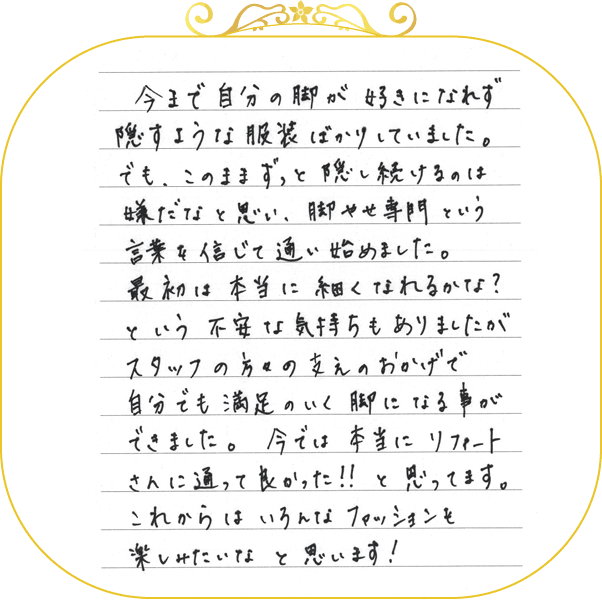 今まで自分の脚が好きになれず
隠すような服装ばかりしていました。
でも、このままずっと隠し続けるのは
嫌だなと思い、脚やせ専門という
言葉を信じて通い始めました。
最初は本当に細くなれるかな?
という不安な気持ちもありましたが
スタッフの方々の支えのおかげで
自分でも満足のいく脚になる事が
できました。今では本当にリファート
さんに通って良かった!!と思ってます。
これからはいろんなファッションを
楽しみたいなと思います!